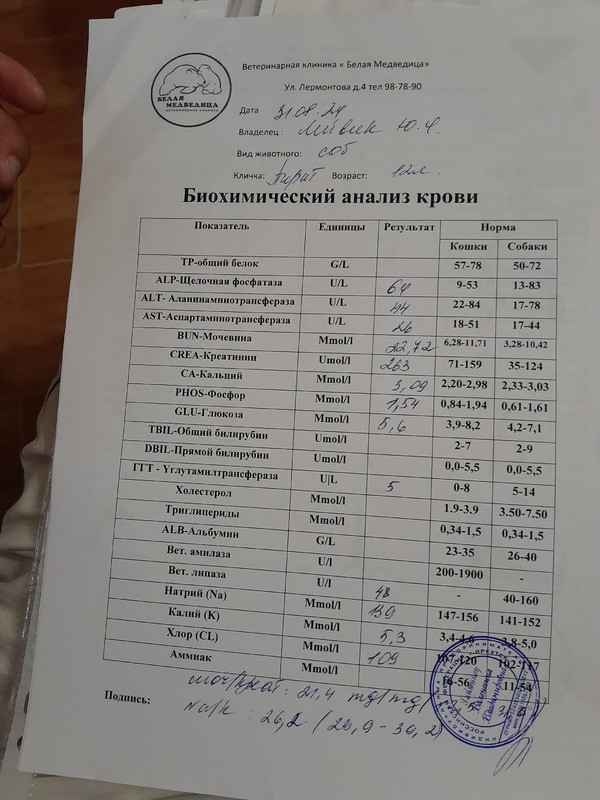 БЕЛАЯ
МЕДВЕДИЦА
ветеринарная клиника
Ветеринарная клиника « Белая Медведица»
Ул. Лермонтова д.4 тел 98-78-90
Дата 31.08.24
Владелец: Ю.Ч.
Вид животного: соб
Кличка: Пират Возраст: 12л.
Биохимический анализ крови
Показатель Единицы Результат Норма
Кошки Собаки
TP-общий белок G/L 57-78 50-72
ALP-Щелочная фосфатаза U/L 64 9-53 13-83
ALT- Аланинаминотрансфераза U/L 44 22-84 17-78
AST-Аспартаминотрансфераза U/L 26 18-51 17-44
BUN-Мочевина Mmol/l 22,72 6,28-11,71 3,28-10,42
CREA-Креатинин Umol/l 263 71-159 35-124
CA-Кальций Mmol/l 3,09 2,20-2,98 2,33-3,03
PHOS-Фосфор Mmol/l 1,54 0,84-1,94 0,61-1,61
GLU-Глюкоза Mmol/l 5,6 3,9-8,2 4,2-7,1
TBIL-Общий билирубин Umol/l 2-7 2-9
DBIL-Прямой билирубин Umol/l 0,0-5,5 0,0-5,5
ГГТ - Yглутамилтрансфераза U|L 5 0-8 5-14
Холестерол Mmol/l 1.9-3.9 3.50-7.50
Триглицериды Mmol/l 0,34-1,5 0,34-1,5
ALB-Альбумин G/L 23-35 26-40
Вет. амилаза U/l 200-1900 -
Вет. липаза U/l 48 - 40-160
Натрий (Na) Mmol/l 139 147-156 141-152
Калий (K) Mmol/l 5,3 3,4-4,6 3,8-5,0
Хлор (CL) Mmol/l 109 107-120 102-117
Аммиак Mmol/l 16-56 11-54
моч/креат: 21,4 mg/mg
Подпись: Na/K: 26,2 (29,9-39,2)